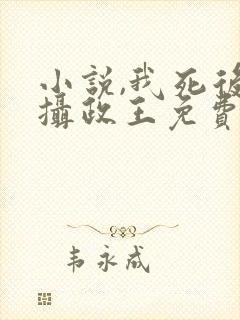 小説,我死後
攝政王免費
韦永成